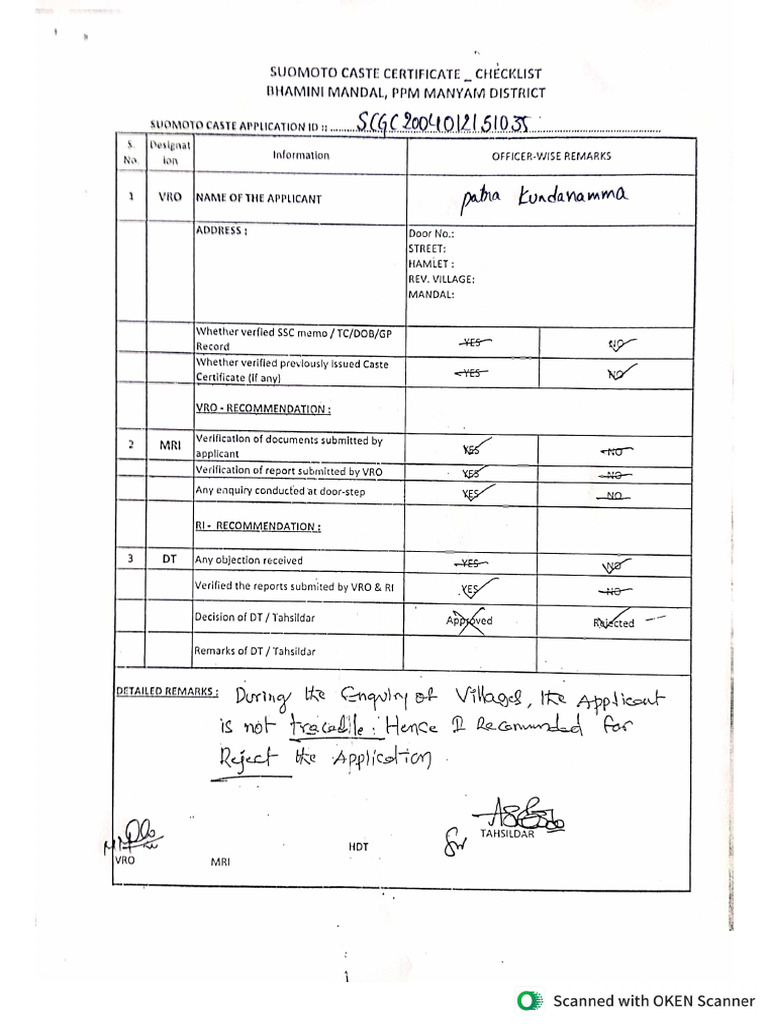 SUOMOTO CASTE CERTIFICATE _ CHECKLIST
BHAMINI MANDAL, PPM MANYAM DISTRICT
SUOMOTO CASTE APPLICATION ID :: SCGC2004012151035
S. No. Designation Information OFFICER-WISE REMARKS
1 VRO NAME OF THE APPLICANT Patra Kundanamma
ADDRESS : Door No.:
STREET:
HAMLET :
REV. VILLAGE:
MANDAL:
Whether verfied SSC memo / TC/DOB/GP
Record YES NO
Whether verified previously issued Caste
Certificate (if any) YES NO
VRO - RECOMMENDATION :
2 MRI Verification of documents submitted by
applicant YES NO
Verification of report submitted by VRO YES NO
Any enquiry conducted at door-step YES NO
RI - RECOMMENDATION :
3 DT Any objection received YES NO
Verified the reports submited by VRO & RI YES NO
Decision of DT / Tahsildar Approved Rejected
Remarks of DT / Tahsildar
DETAILED REMARKS : During the Enquiry of Villages, the Applicant
is not tracedile. Hence I Recommended for
Reject the Application.
TAHSILDAR
HDT
VRO MRI
Scanned with OKEN Scanner